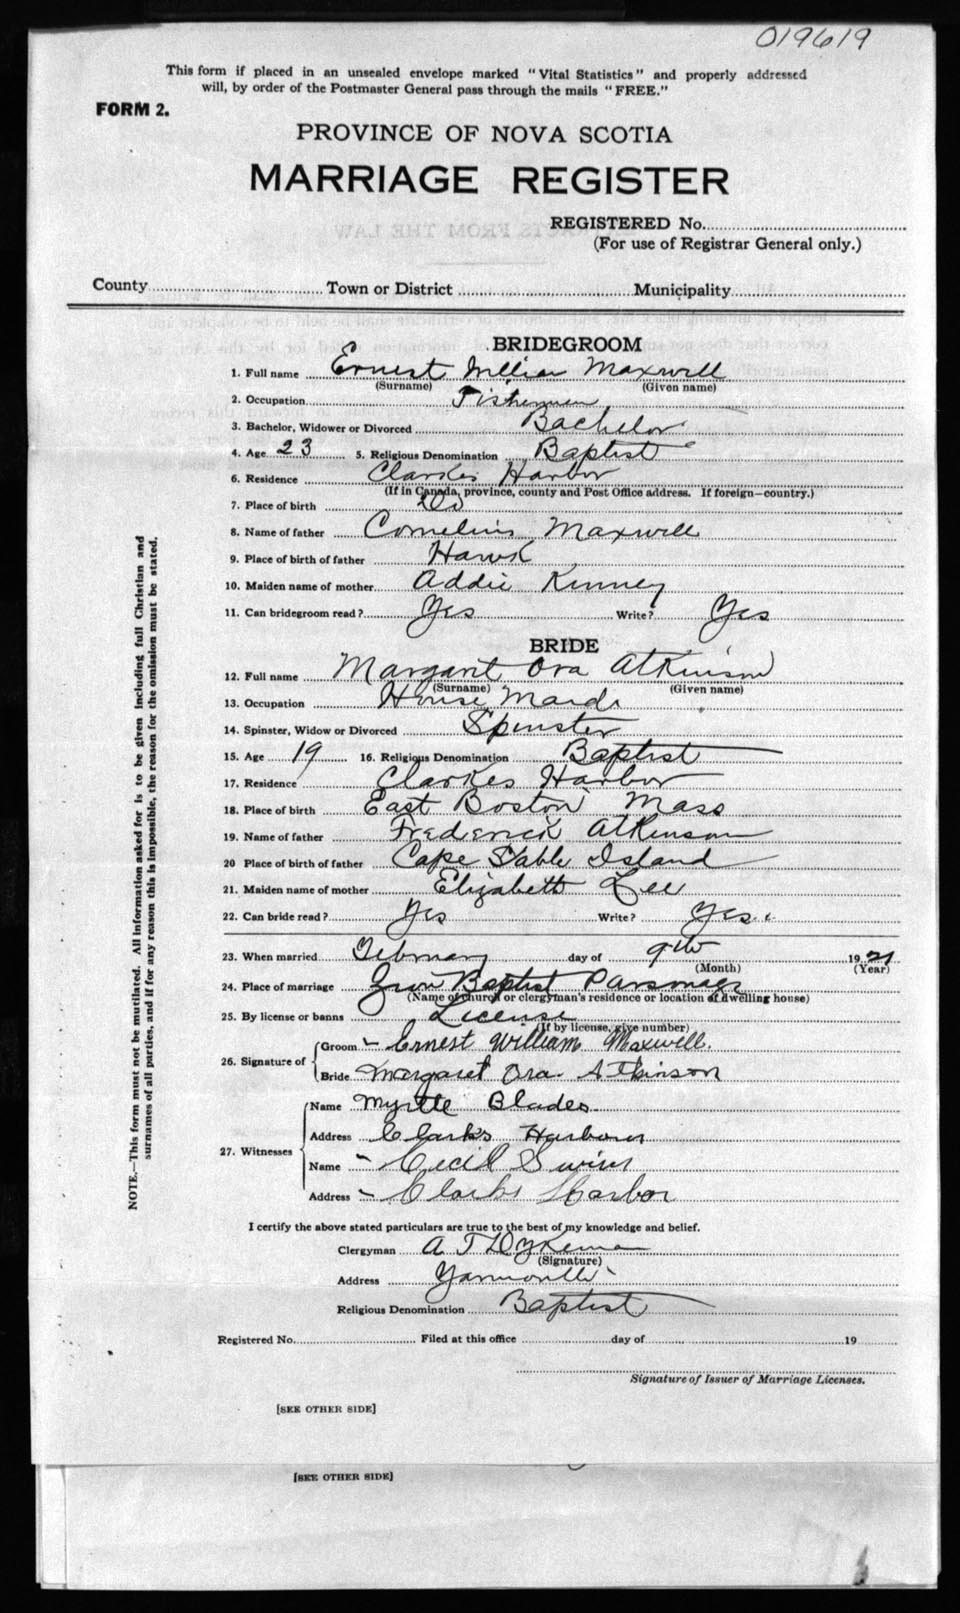 019619
This form if placed in an unsealed envelope marked "Vital Statistics" and properly addressed
will, by order of the Postmaster General pass through the mails "FREE."
FORM 2.
PROVINCE OF NOVA SCOTIA
MARRIAGE REGISTER
REGISTERED No.
(For use of Registrar General only.)
County Town or District Municipality
BRIDEGROOM
1. Full name Ernest William Maxwell
(Surname) (Given name)
2. Occupation Fisherman
3. Bachelor, Widower or Divorced Bachelor
4. Age 23 5. Religious Denomination Baptist
6. Residence Clarkes Harbor
(If in Canada, province, county and Post Office address. If foreign—country.)
7. Place of birth Do
8. Name of father Cornelius Maxwell
9. Place of birth of father Hawk
10. Maiden name of mother Addie Kinney
11. Can bridegroom read? Yes Write? Yes
BRIDE
12. Full name Margaret Ora Atkinson
(Surname) (Given name)
13. Occupation House Maid
14. Spinster, Widow or Divorced Spinster
15. Age 19 16. Religious Denomination Baptist
17. Residence Clarkes Harbor
18. Place of birth East Boston Mass
19. Name of father Frederick Atkinson
20 Place of birth of father Cape Sable Island
21. Maiden name of mother Elizabeth Lee
22. Can bride read? Yes Write? Yes.
23. When married February day of 9th 1921
(Month) (Year)
24. Place of marriage Zion Baptist Parsonage
(Name of church or clergyman's residence or location of dwelling house)
25. By license or banns License
(If by license, give number)
26. Signature of Groom Ernest William Maxwell.
Bride Margaret Ora Atkinson
27. Witnesses Name Myrtle Blades
Address Clark's Harbour
Name Cecil Swim
Address Clarks Harbor
I certify the above stated particulars are true to the best of my knowledge and belief.
Clergyman A T Dykeman
(Signature)
Address Yarmouth
Religious Denomination Baptist
Registered No. Filed at this office day of 19
Signature of Issuer of Marriage Licenses.
[SEE OTHER SIDE]
[SEE OTHER SIDE]
NOTE.—This form must not be mutilated. All information asked for is to be given including full Christian and
surnames of all parties, and if for any reason this is impossible, the reason for the omission must be stated.